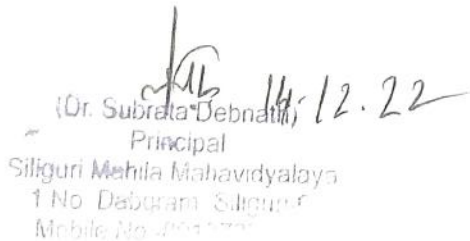 14.12.22
(Dr. Subrata Debnath)
Principal
Siliguri Mahila Mahavidyalaya
1 No Dabgram
Mobile No